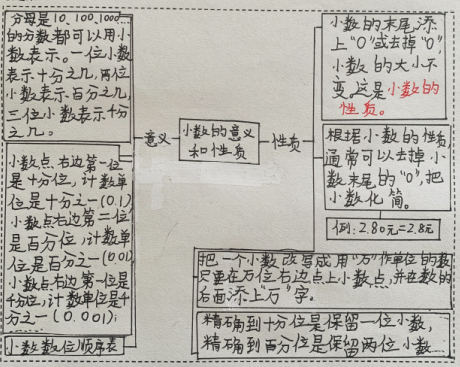 分母是10、100、1000…
的分数都可以用小
数表示。一位小数
表示十分之几,两位
小数表示百分之几,
三位小数表示千分
之几。
小数点右边第一位
是十分位,计数单
位是十分之一(0.1)
小数点右边第二位
是百分位,计数单
位是百分之一(0.01)
小数点右边第一位是
千分位,计数单位是千
分之一(0.001);
小数数位顺序表
意义
小数的意义
和性质
性质
小数的末尾添
上"0"或去掉"0",
小数的大小不
变。这是小数的
性质。
根据小数的性质,
通常可以去掉小
数末尾的"0",把
小数化简。
例:2.80元=2.8元
把一个小数改写成用"万"作单位的数
只要在万位右边点上小数点,并在数的
后面添上"万"字。
精确到十分位是保留一位小数,
精确到百分位是保留两位小数…